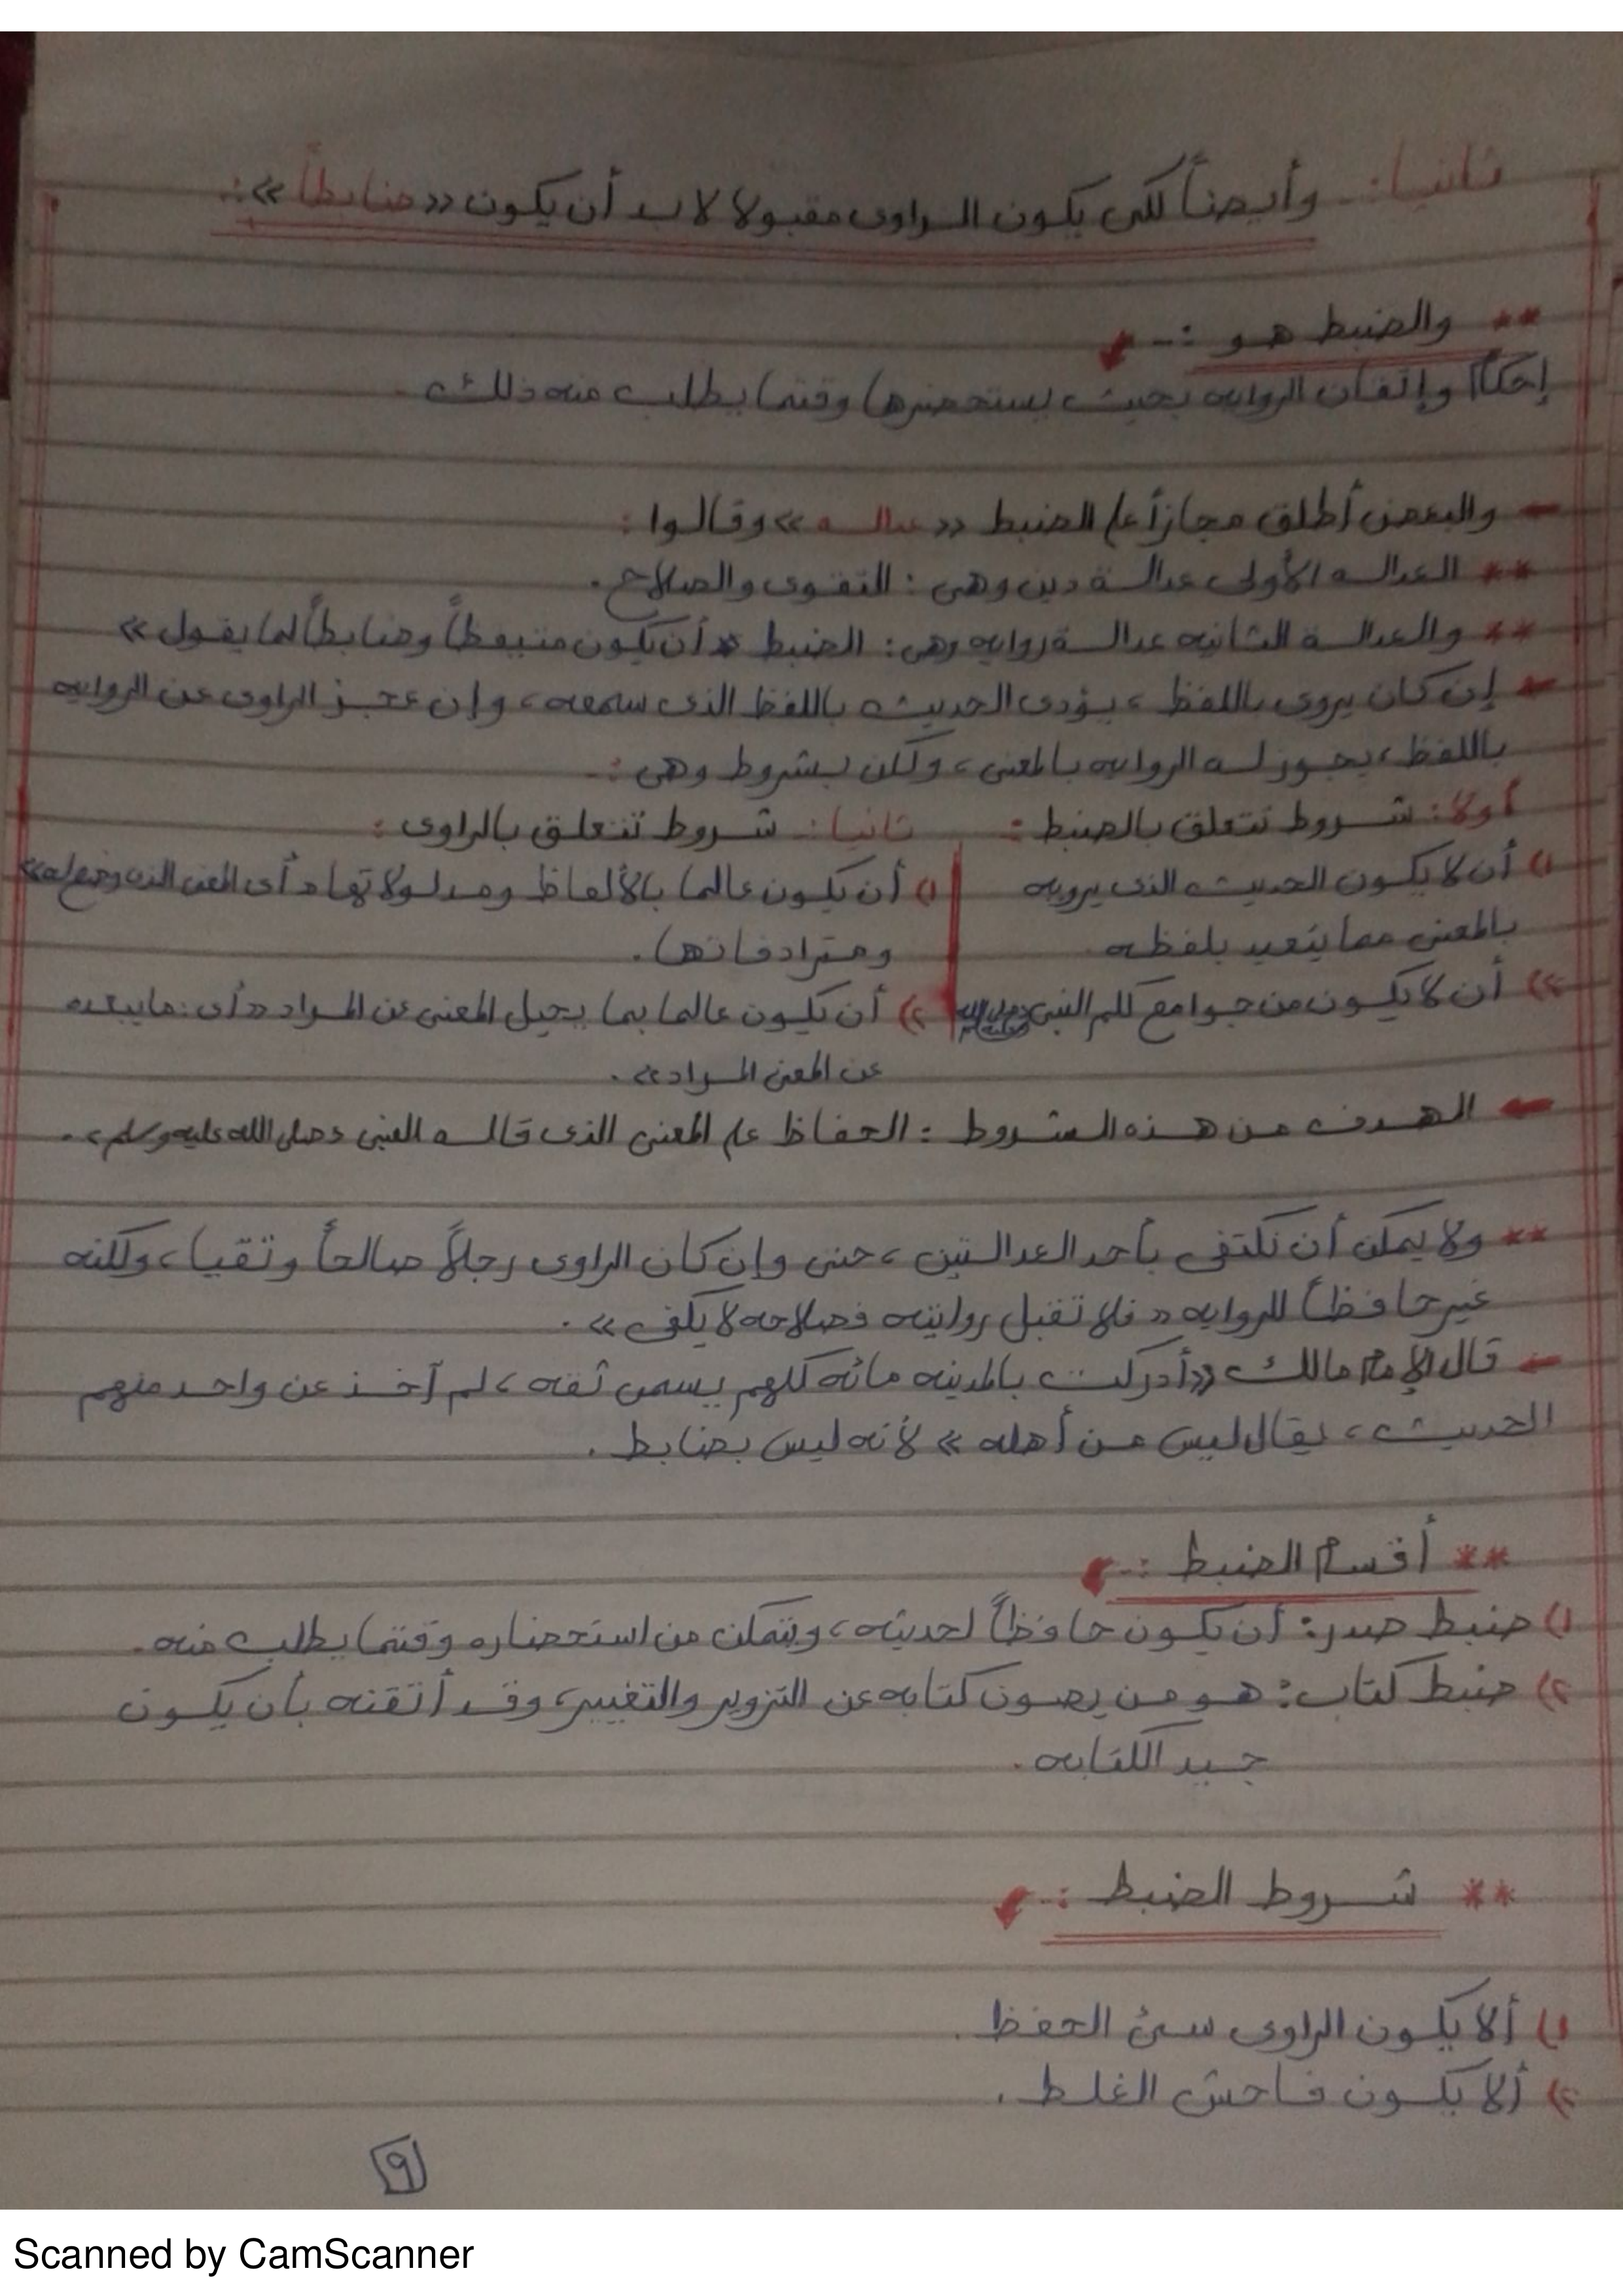 ثانيا:- وأيضاً لكى يكون الراوى مقبولا لابد أن يكون «ضابطاً»:
** والضبط هو :-
إحكام وإتقان الروايه بحيث يستحضرها وقتما يطلب منه ذلك
والبعض أطلق مجازاً على الضبط «عداله» وقالوا :
** العداله الأولى عدالة دين وهى : التقوى والصلاح.
** والعدالة الثانيه عدالة روايه وهى : الضبط «أن يكون متيقظاً وضابطاً لما يقول»
إن كان يروى باللفظ ، يؤدى الحديث باللفظ الذى سمعه ، وإن عجز الراوى عن الروايه
باللفظ ، يجوز له الروايه بالمعنى ، ولكن بشروط وهى :-
أولا: شروط تتعلق بالضبط :
١) أن لا يكون الحديث الذى يرويه
بالمعنى مما يتعبد بلفظه
٢) أن لا يكون من جوامع كلم النبى
ثانيا: شروط تتعلق بالراوى :
١) أن يكون عالما بالألفاظ ومدلولاتها «أى المعنى الذى وضع له»
ومترادفاتها.
٢) أن يكون عالما بما يحيل المعنى عن المراد «أى: ما يبعده
عن المعنى المراد».
الهدف من هذه الشروط : الحفاظ على المعنى الذى قاله النبى «صلى الله عليه وسلم».
** ولا يمكن أن نكتفى بأحد العدالتين ، حتى وإن كان الراوى رجلاً صالحاً وتقيا ، ولكنه
غير حافظاً للروايه «فلا تقبل روايته فصلاحه لا يكفى».
قال الإمام مالك «أدركت بالمدينه مائه كلهم يسمى ثقه ، لم آخذ عن واحد منهم
الحديث ، يقال ليس من أهله» لأنه ليس بضابط.
** أقسام الضبط :-
١) ضبط صدر: أن يكون حافظاً لحديثه ، ويتمكن من استحضاره وقتما يطلب منه.
٢) ضبط كتاب: هو من يصون كتابه عن التزوير والتغيير ، وقد أتقنه بأن يكون
جيد الكتابه.
** شروط الضبط :-
١) ألا يكون الراوى سىء الحفظ.
٢) ألا يكون فاحش الغلط.
٩
Scanned by CamScanner